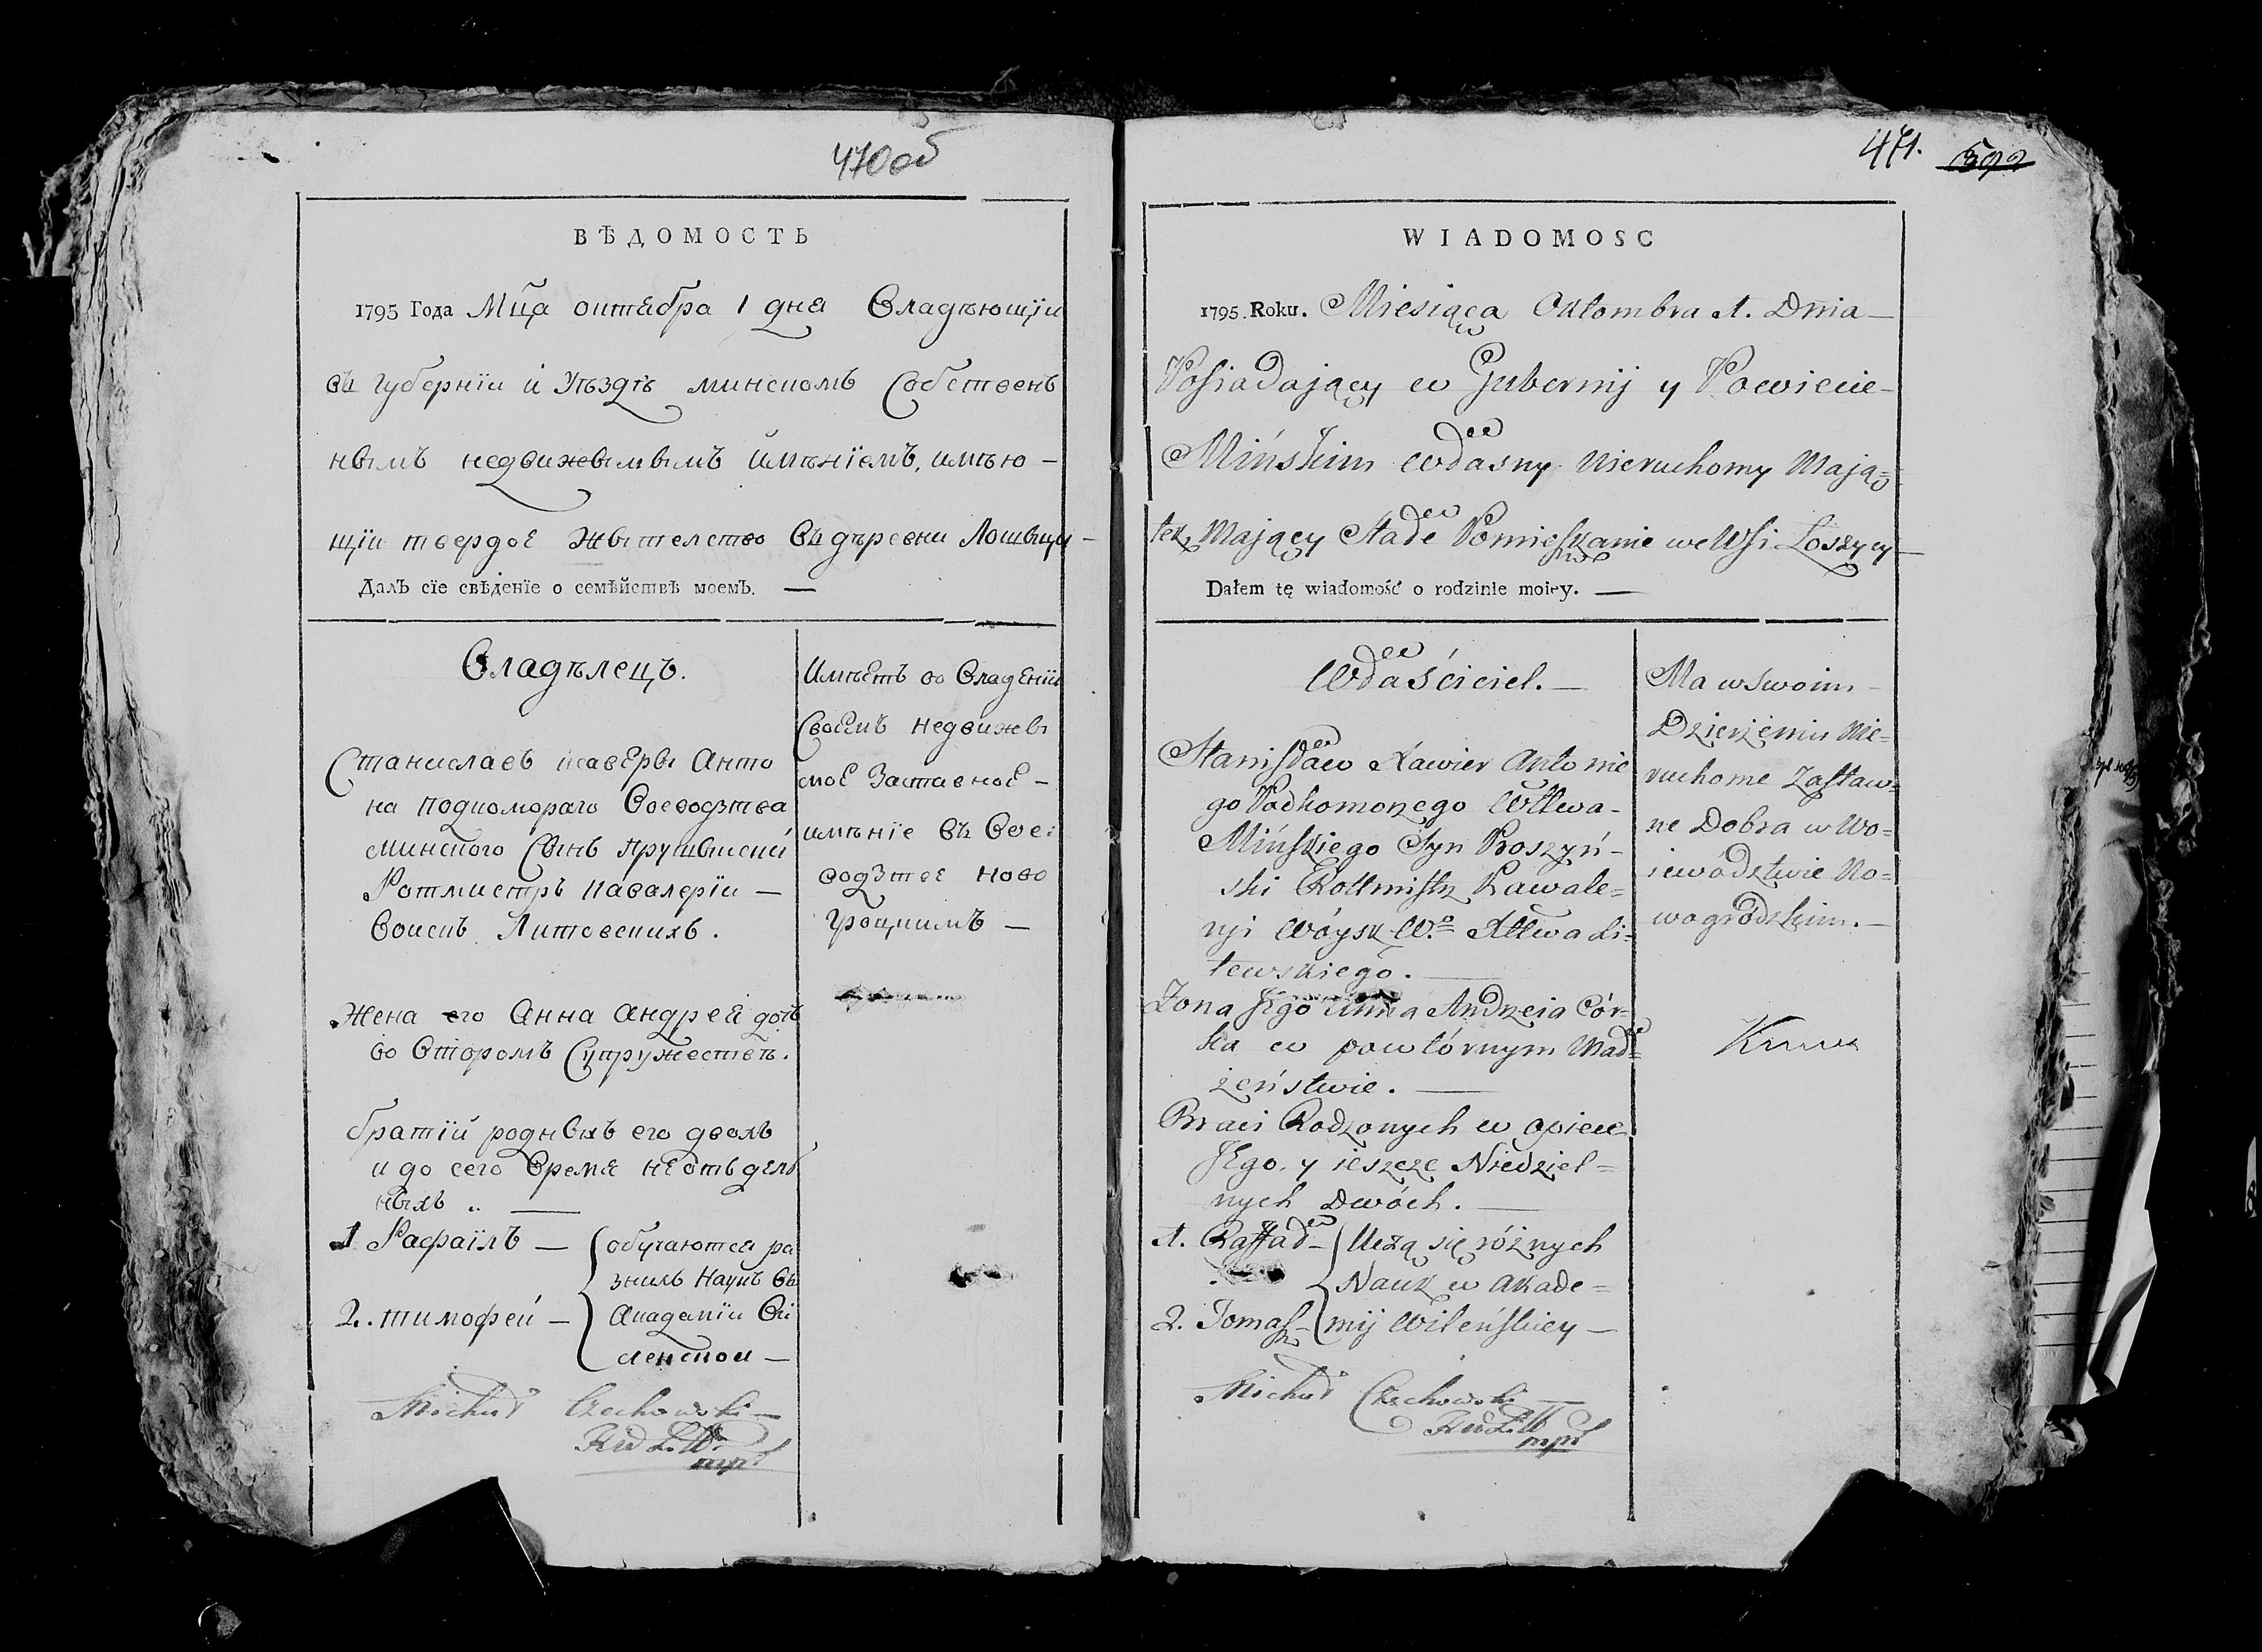 470об
ВѢДОМОСТЬ
1795 Года Мца октября 1 дня Владѣющїи
въ Губернїи и Уѣздѣ минскомъ Собствен
нымъ недвижевымымъ имѣнїемъ, имѣю –
щїи твердое жытелство въ дѣревни Лошыцы –
Далъ сїе свѣденїе о семѣйствѣ моемъ. —
Владѣлецъ.
Станиславъ ксаверы Анто
на подкоморого Воеводзтва
минского Сынъ прушынски
Ротмистръ кавалерїи —
Воискъ Литовскихъ.
Жена его Анна Андрея дочь
во второмъ Супружествѣ.
братїй родныхъ его двохъ
и до сего время неотъдель
ныхъ .. —
1 Рафаїлъ —
2. тимофей —
обучаются ра
зних Наукъ въ
Академїи Ви
ленскои —
Имѣетъ во Владенїи
Своемъ недвижевы
мое Заставное –
имѣнїе въ Вое
водзтве Ново
Гроцкимъ —
Michał Czechowski —
mpr
471. 592
WIADOMOSC
1795. Roku. Miesiąca Oktombra 1. Dnia —
Posiadający w Gubernij y Powiecie –
Mińskim własny Nieruchomy Mają=
tek, Mający Stałe Pomieszkanie we Wsi Łoszycy —
Dałem tę wiadomość o rodzinie moiey. —
Właściciel. —
Stanisław Xawier Antonie
go Podkomorzego Wttwa –
Mińskiego Syn Proszyń –
ski Rottmistrz Kawale=
ryi Wóysk W.º Xttwa Li=
tewskiego. —
Żona Jego Anna Andrzeia Cór=
ka w powtórnym Mał=
żeństwie. —
Braci Rodzonych w opiece
Jego. y ieszcze Niedziel=
nych Dwóch. —
1. Raffał –
2. Tomasz –
Uczą się różnych
Nauk w Akade=
mij Wileńskiey —
Ma w swoim –
Dzierżeniu Nie=
ruchome Zastaw=
ne Dobra w Wo=
iewództwie No=
wogródzkim. —
Michał Czechowski —
mpr